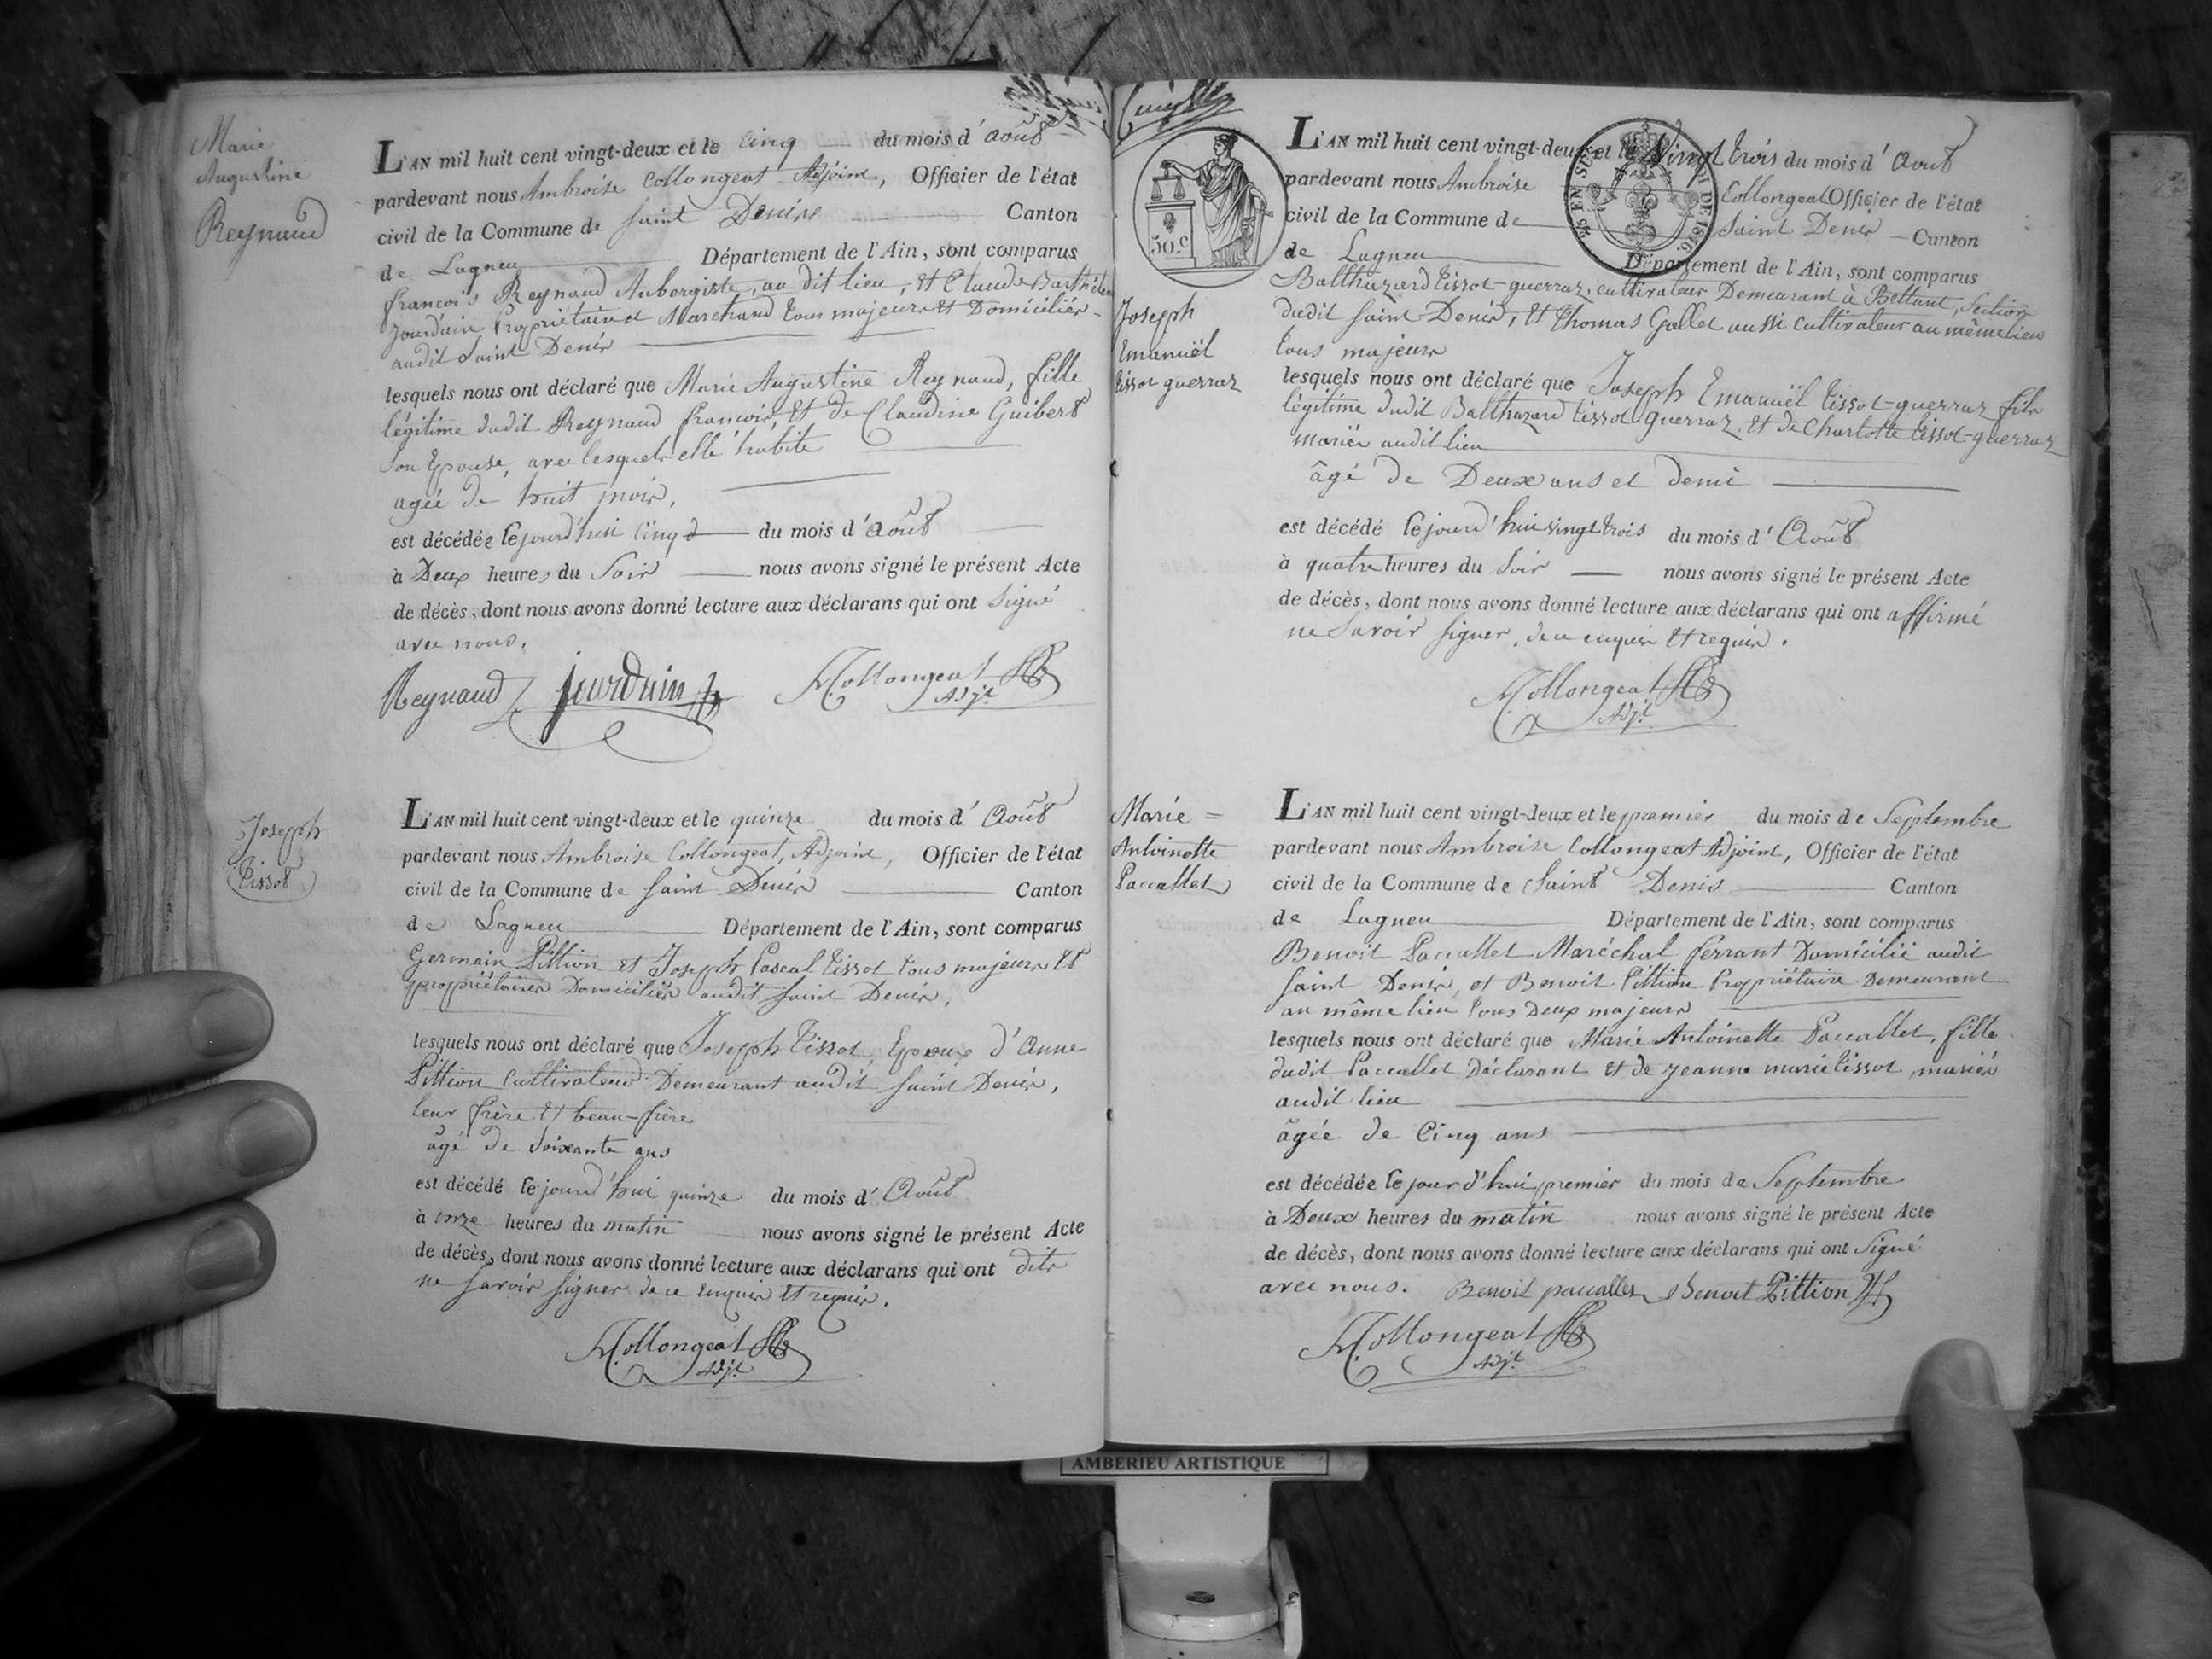 Marie
Augustine
Reynaud
L'AN mil huit cent vingt-deux et le Cinq du mois d'Août
pardevant nous Ambroise Collongeat Adjoint, Officier de l'état
civil de la Commune de Saint Denis Canton
de Lagneu Département de l'Ain, sont comparus
françois Reynaud Aubergiste, au dit lieu, et Claude
Jourdain Propriétaire et Marchand tous majeurs et Domiciliés
audit Saint Denis
lesquels nous ont déclaré que Marie Augustine Reynaud, fille
légitime dudit Reynaud françois, et de Claudine Guibert
Son Epouse, avec lesquels elle habite
agée de huit mois,
est décédée cejourd'hui Cinq du mois d'Août
à Deux heures du Soir nous avons signé le présent Acte
de décès, dont nous avons donné lecture aux déclarans qui ont Signé
avec nous.
Reynaud Jourdain Collongeat
Adjt
Joseph
Tissot
L'AN mil huit cent vingt-deux et le quinze du mois d'Août
pardevant nous Ambroise Collongeat, Adjoint, Officier de l'état
civil de la Commune de Saint Denis Canton
de Lagneu Département de l'Ain, sont comparus
Germain Pittion et Joseph Pascal Tissot tous majeurs et
propriétaires Domiciliés audit Saint Denis,
lesquels nous ont déclaré que Joseph Tissot, Epoux d'Anne
Pittion Cultivateur Demeurant audit Saint Denis,
leur frère et beau-frère
âgé de Soixante ans
est décédé cejourd'hui quinze du mois d'Août
à onze heures du matin nous avons signé le présent Acte
de décès, dont nous avons donné lecture aux déclarans qui ont dits
ne Savoir Signer de ce enquis et requis.
Collongeat
Adjt
50.c
25 EN SUS
LOI DE 1816.
Joseph
Emanuël
tissot guerraz
L'AN mil huit cent vingt-deux et le Vingt trois du mois d'Août
pardevant nous Ambroise Collongeat Officier de l'état
civil de la Commune de Saint Denis Canton
de Lagneu Département de l'Ain, sont comparus
Balthazard tissot-guerraz, cultivateur Demeurant à Bettant, Section
dudit Saint-Denis, et Thomas Gallet aussi Cultivateur au même lieu
tous majeurs
lesquels nous ont déclaré que Joseph Emanuël tissot-guerraz fils
légitime dudit Balthazard tissot guerraz, et de Charlotte tissot-guerraz
mariés audit lieu
âgé de Deux ans et demi
est décédé cejourd'hui vingt trois du mois d'Août
à quatre heures du Soir nous avons signé le présent Acte
de décès, dont nous avons donné lecture aux déclarans qui ont affirmé
ne Savoir signer, de ce enquis et requis.
Collongeat
Adjt
Marie =
Antoinette
Paccallet
L'AN mil huit cent vingt-deux et le premier du mois de Septembre
pardevant nous Ambroise Collongeat Adjoint, Officier de l'état
civil de la Commune de Saint Denis Canton
de Lagneu Département de l'Ain, sont comparus
Benoit Paccallet Maréchal ferrant Domicilié audit
Saint Denis, et Benoit Pittion Propriétaire Demeurant
au même lieu tous Deux majeurs
lesquels nous ont déclaré que Marie Antoinette Paccallet, fille
dudit Paccallet Déclarant et de Jeanne marie tissot, mariés
audit lieu
âgée de Cinq ans
est décédée cejourd'hui premier du mois de Septembre
à Deux heures du matin nous avons signé le présent Acte
de décès, dont nous avons donné lecture aux déclarans qui ont Signé
avec nous. Benoit paccallet Benoit Pittion
Collongeat
Adjt
AMBERIEU ARTISTIQUE